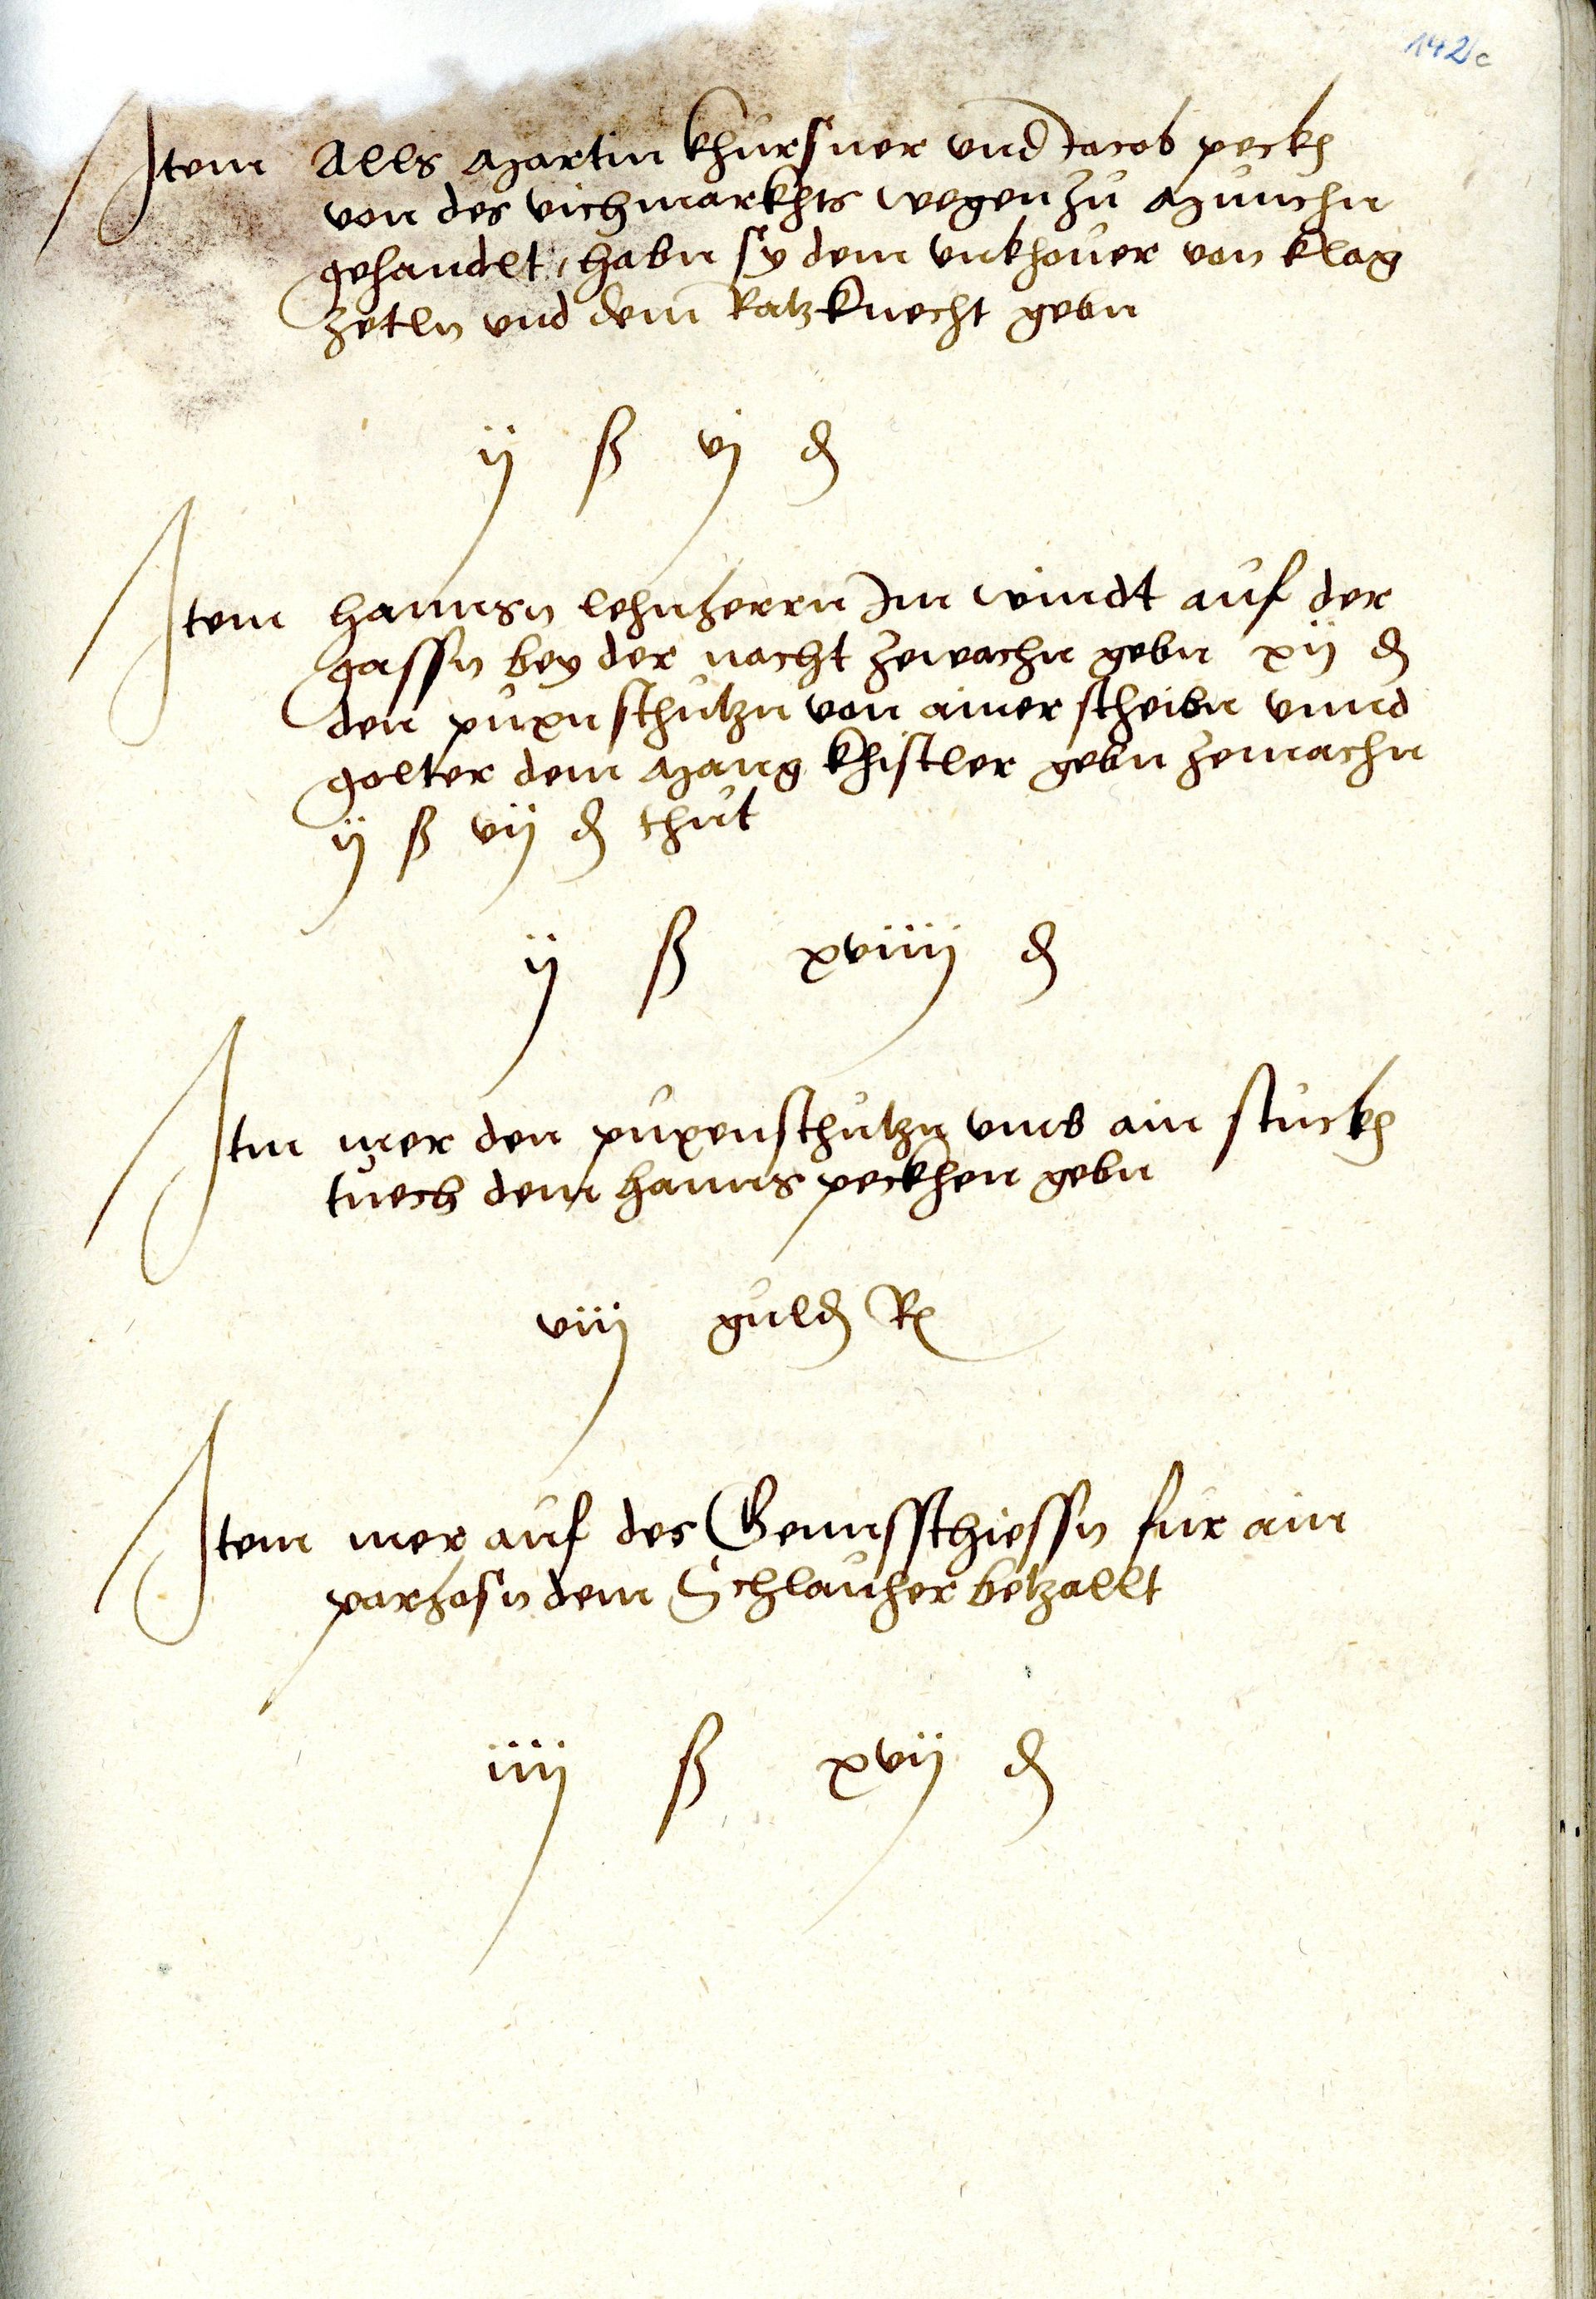 142/c
Item Alls Martin khursner vnd Jacob peckh
von des vichmarkhts wegen zu Munchn
gehandlt, habn sy dem vnkhouer von klag
zetln vnd dem Ratzknecht gebn
ij ß vj ₰
Item hannsn lehnherrn Im windt auf der
gassn bey der nacht zewachn gebn xij ₰
den puxnschutzn von ainer scheibn vnnd
golter dem Mang khistler gebn zemachn
ij ß vij ₰ thut
ij ß xviiij ₰
Itm mer den puxenschutzn vmb ain stuckh
tuech dem hanns peckhen gebn
viij guld R
Item mer auf des Gemsschiessn fur ain
parhosn dem Schlauher betzallt
iiij ß xvij ₰